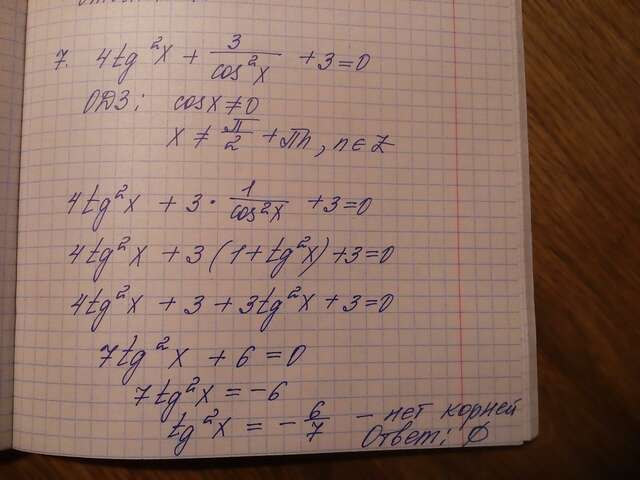 7. 4tg²x + 3/cos²x + 3 = 0
ОДЗ: cosx ≠ 0
x ≠ π/2 + πn, n ∈ Z
4tg²x + 3 · 1/cos²x + 3 = 0
4tg²x + 3(1 + tg²x) + 3 = 0
4tg²x + 3 + 3tg²x + 3 = 0
7tg²x + 6 = 0
7tg²x = -6
tg²x = -6/7 - нет корней
Ответ: ∅